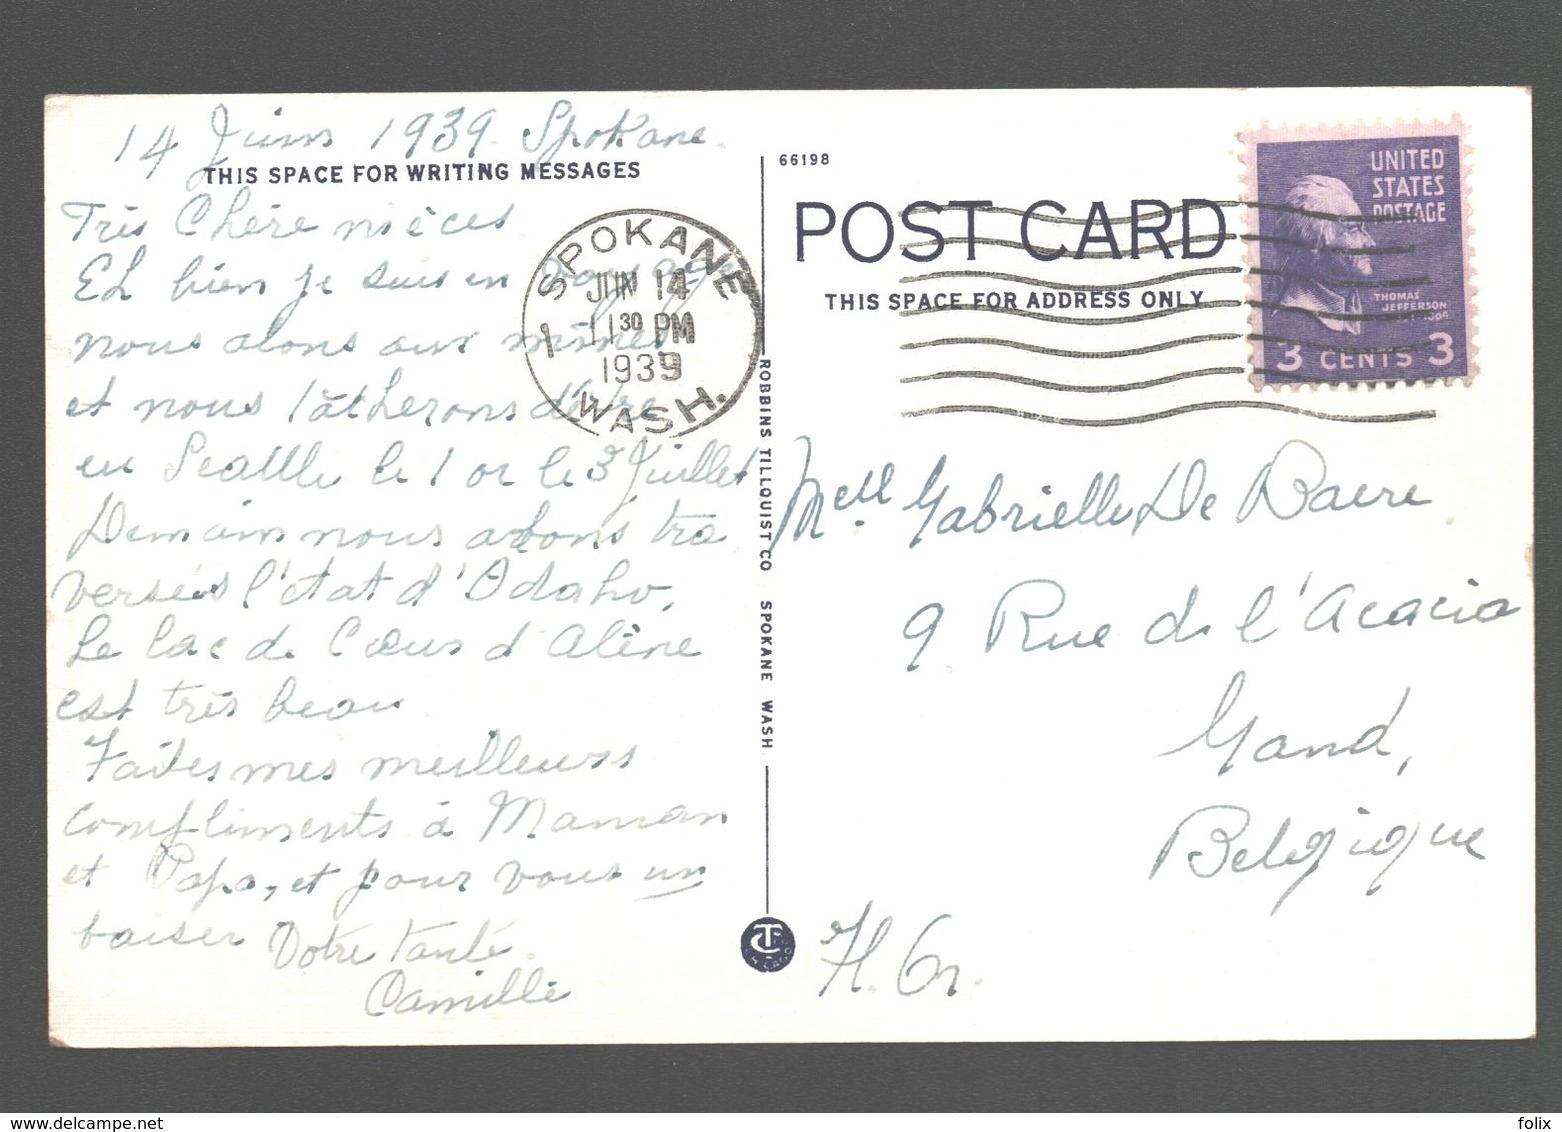 14 Juins 1939. Spokane.
THIS SPACE FOR WRITING MESSAGES
Très Chère nièces
Eh bien je suis en voyage
nous alons aux mines
et nous tâtherons d'être
en Seattle le 1 or le 3 Juillet
Demain nous alons tra
versés l'état d'Idaho,
Le lac de Cœurs d'Alène
est très beau
Faites mes meilleurs
compliments à Maman
et Papa, et pour vous un
baiser Votre tante
Camille
SPOKANE
JUN 14
1 11 30 PM
1939
WASH.
ROBBINS TILLQUIST CO SPOKANE WASH
66198
POST CARD
THIS SPACE FOR ADDRESS ONLY
UNITED
STATES
POSTAGE
THOMAS
JEFFERSON
3 CENTS 3
Mell Gabrielle De Baere
9 Rue de l'Acacia
Gand,
Belgique
H. Gr.
CTC
CHICAGO
folix